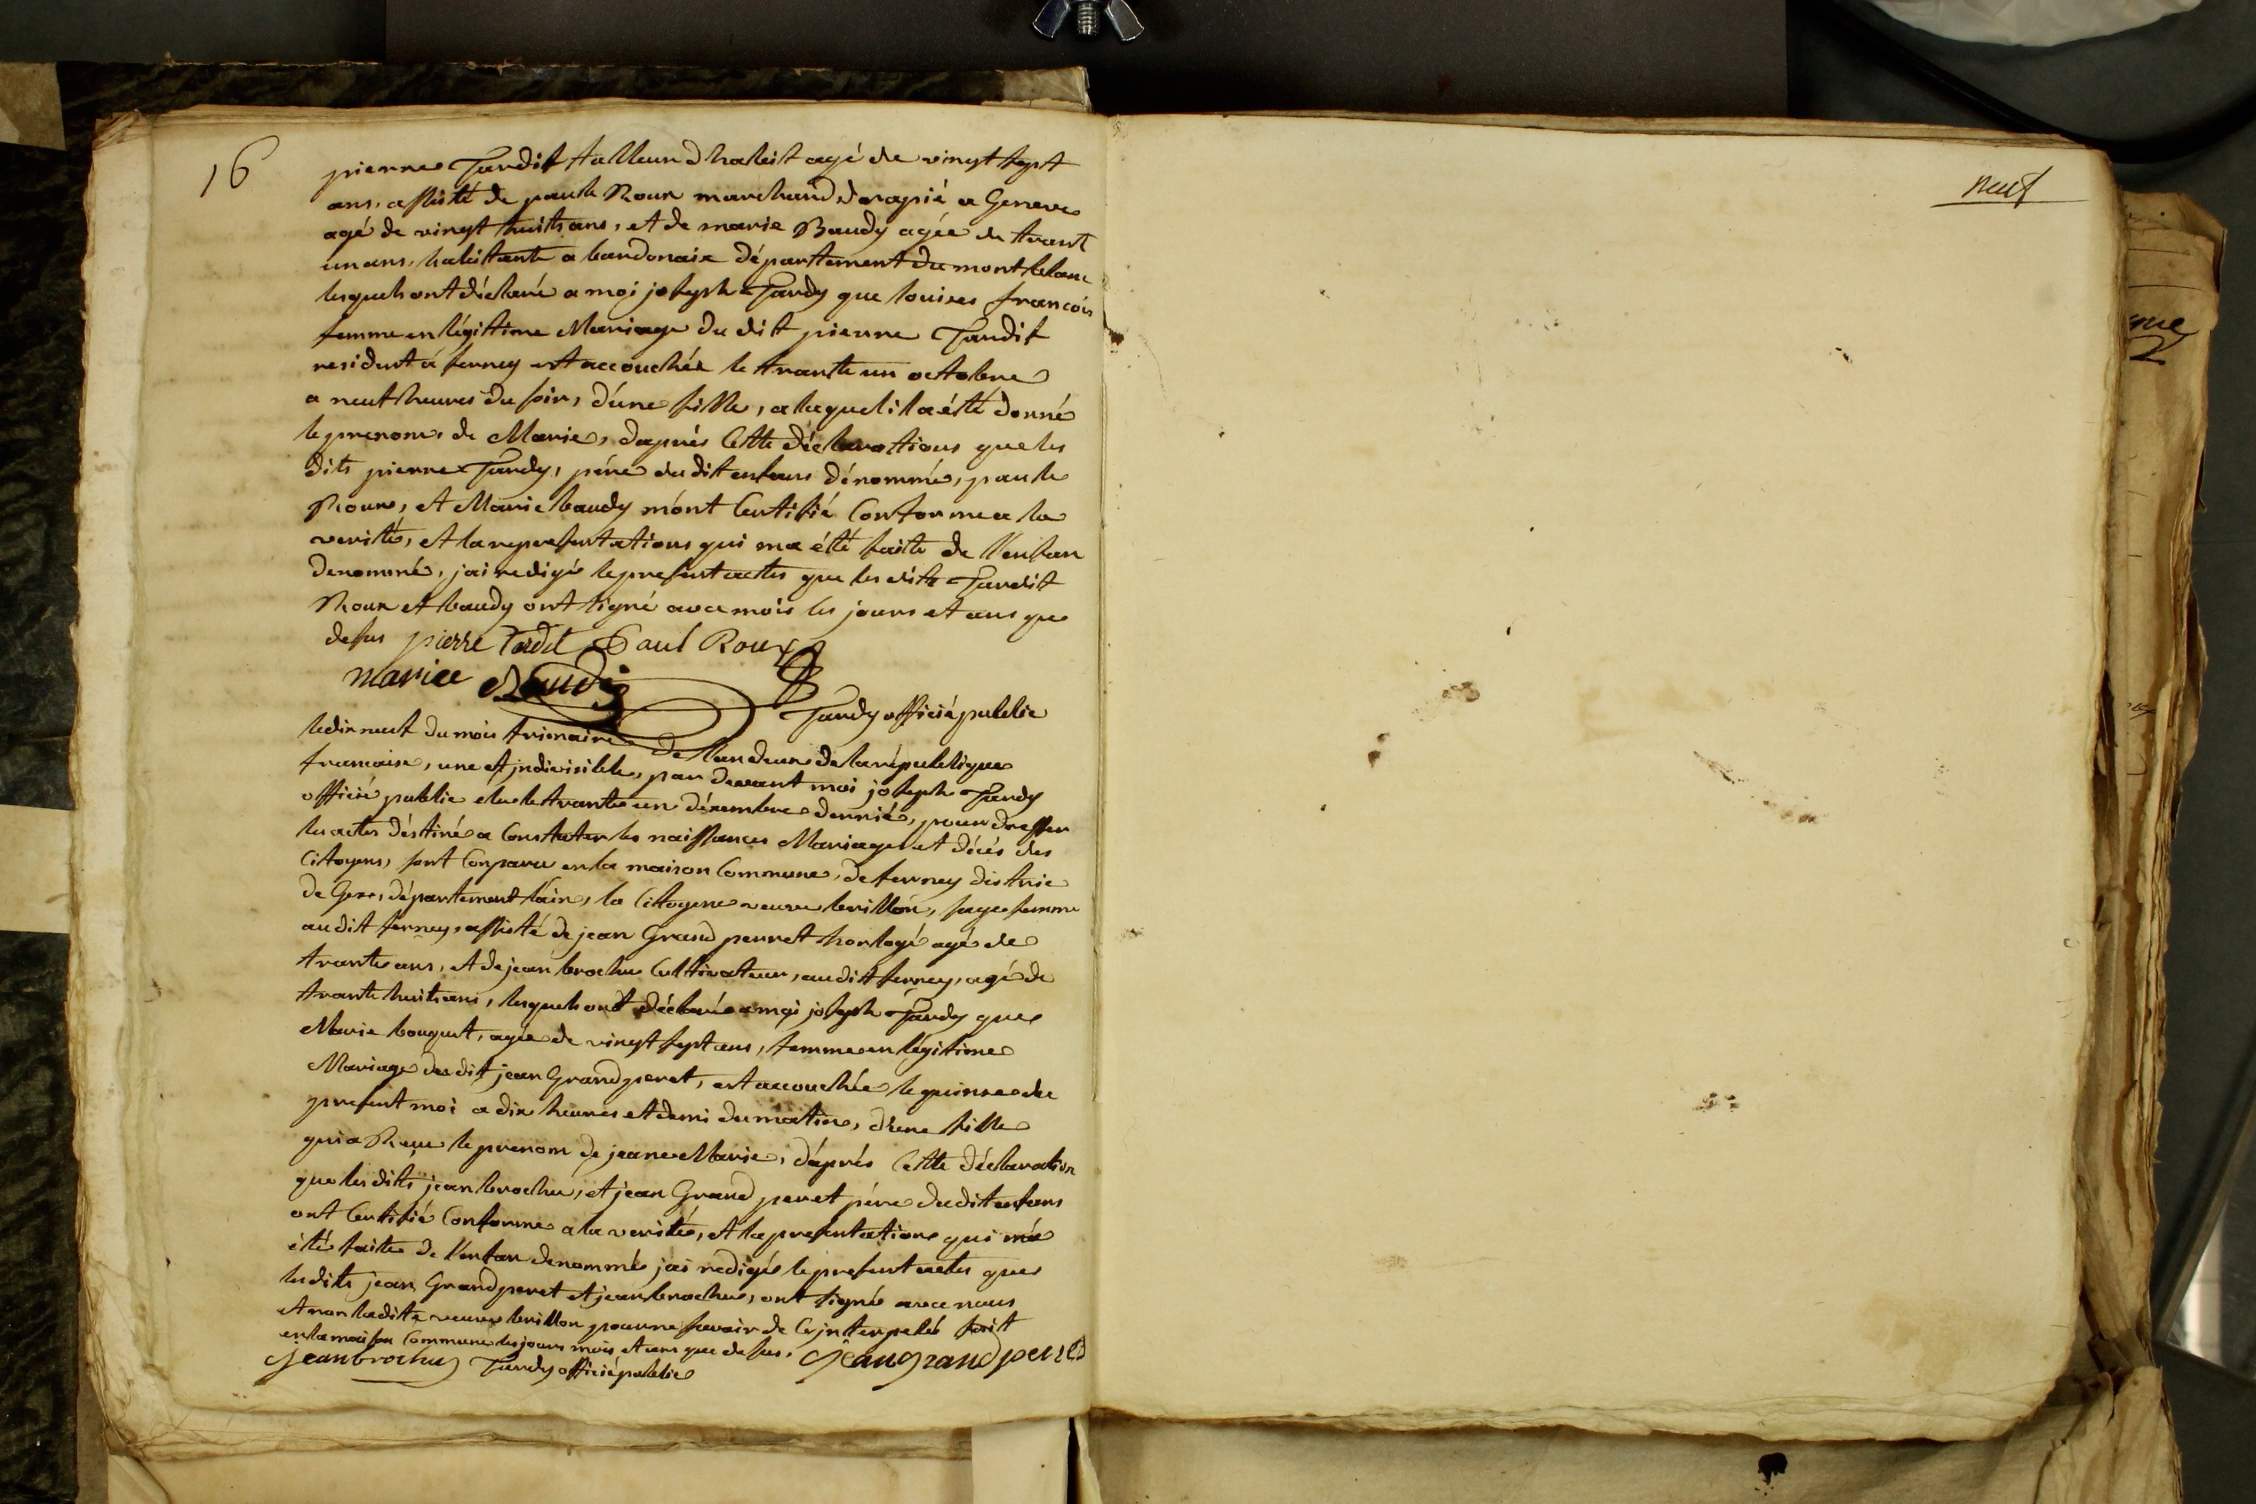 16
pierre Tardit talleur d habist agé de vingt sept
ans, assisté de paule Roux marchand, drapié a Geneve
agé de vingt huits ans, et de marie Baudy agée de trant
un ans, habitante a bardonaix département du mont blanc
lesquels ont déclaré a moi joseph Tardy que louises francois
femme en légitime Mariage du dit pierre Tardit
residant á ferney est accouchée le trante un octobre
a neuf heures du soir, d'une fille, a laquel il a été donné
le prenom, de Marie, daprés cette déclarations que les
dits pierre Tardy, pére du dit enfans dénommé, paule
Roux, et Marie baudy m'ont certifié conforme a la
verité, et la representations qui ma été faite de l'enfan
denommé, jai redigé le present actes que les dits Tardit
Roux et baudy ont signé avec mois les jours et ans que
desus pierre Tardit Paul Roux
mariee Baudy
Tardy officié public
le dix neuf du mois frimaire de l'an deux de la républiques
francaise, une et jndivisible, par devant moi joseph Tardy
officié public élu le trante un décembre dernié, pour dresser
les actes déstiné a constater les naissances Mariages et décés des
citoyens, sont conparu en la maison commune, de ferney distric
de Gex, département lain, la citoyene veuve brillon, sage femme
au dit ferney, assisté de jean Grand perret horlogé agé de
trante ans, et de jean brochu cultivateur, au dit ferney, agé de
trante huits ans, lesquels ont déclaré a moi joseph Tardy que
Marie bouquet, agée de vingt sept ans, femme en légitime
Mariage du dit jean Grand peret, est accouchée le quinse du
present moi a dix heures et demi du matin, d'une fille
qui a Reçue le prenom de jeane Marie, d'áprés cette déclaration
que les dits jean brochu, et jean Grand peret pére du dit enfans
ont certifié conforme a la verités, et la presentation qui má
été faite de l'enfan denommé jai redigé le present actes que
les dits jean Grand peret et jean brochu, ont signé avec nous
et non la dite veuve brillon pour ne savoir de ce jnterpelé fait
en la maison commune les jours mois et ans que desus.
jean brochu Tardy officié public jean grand perret
neuf